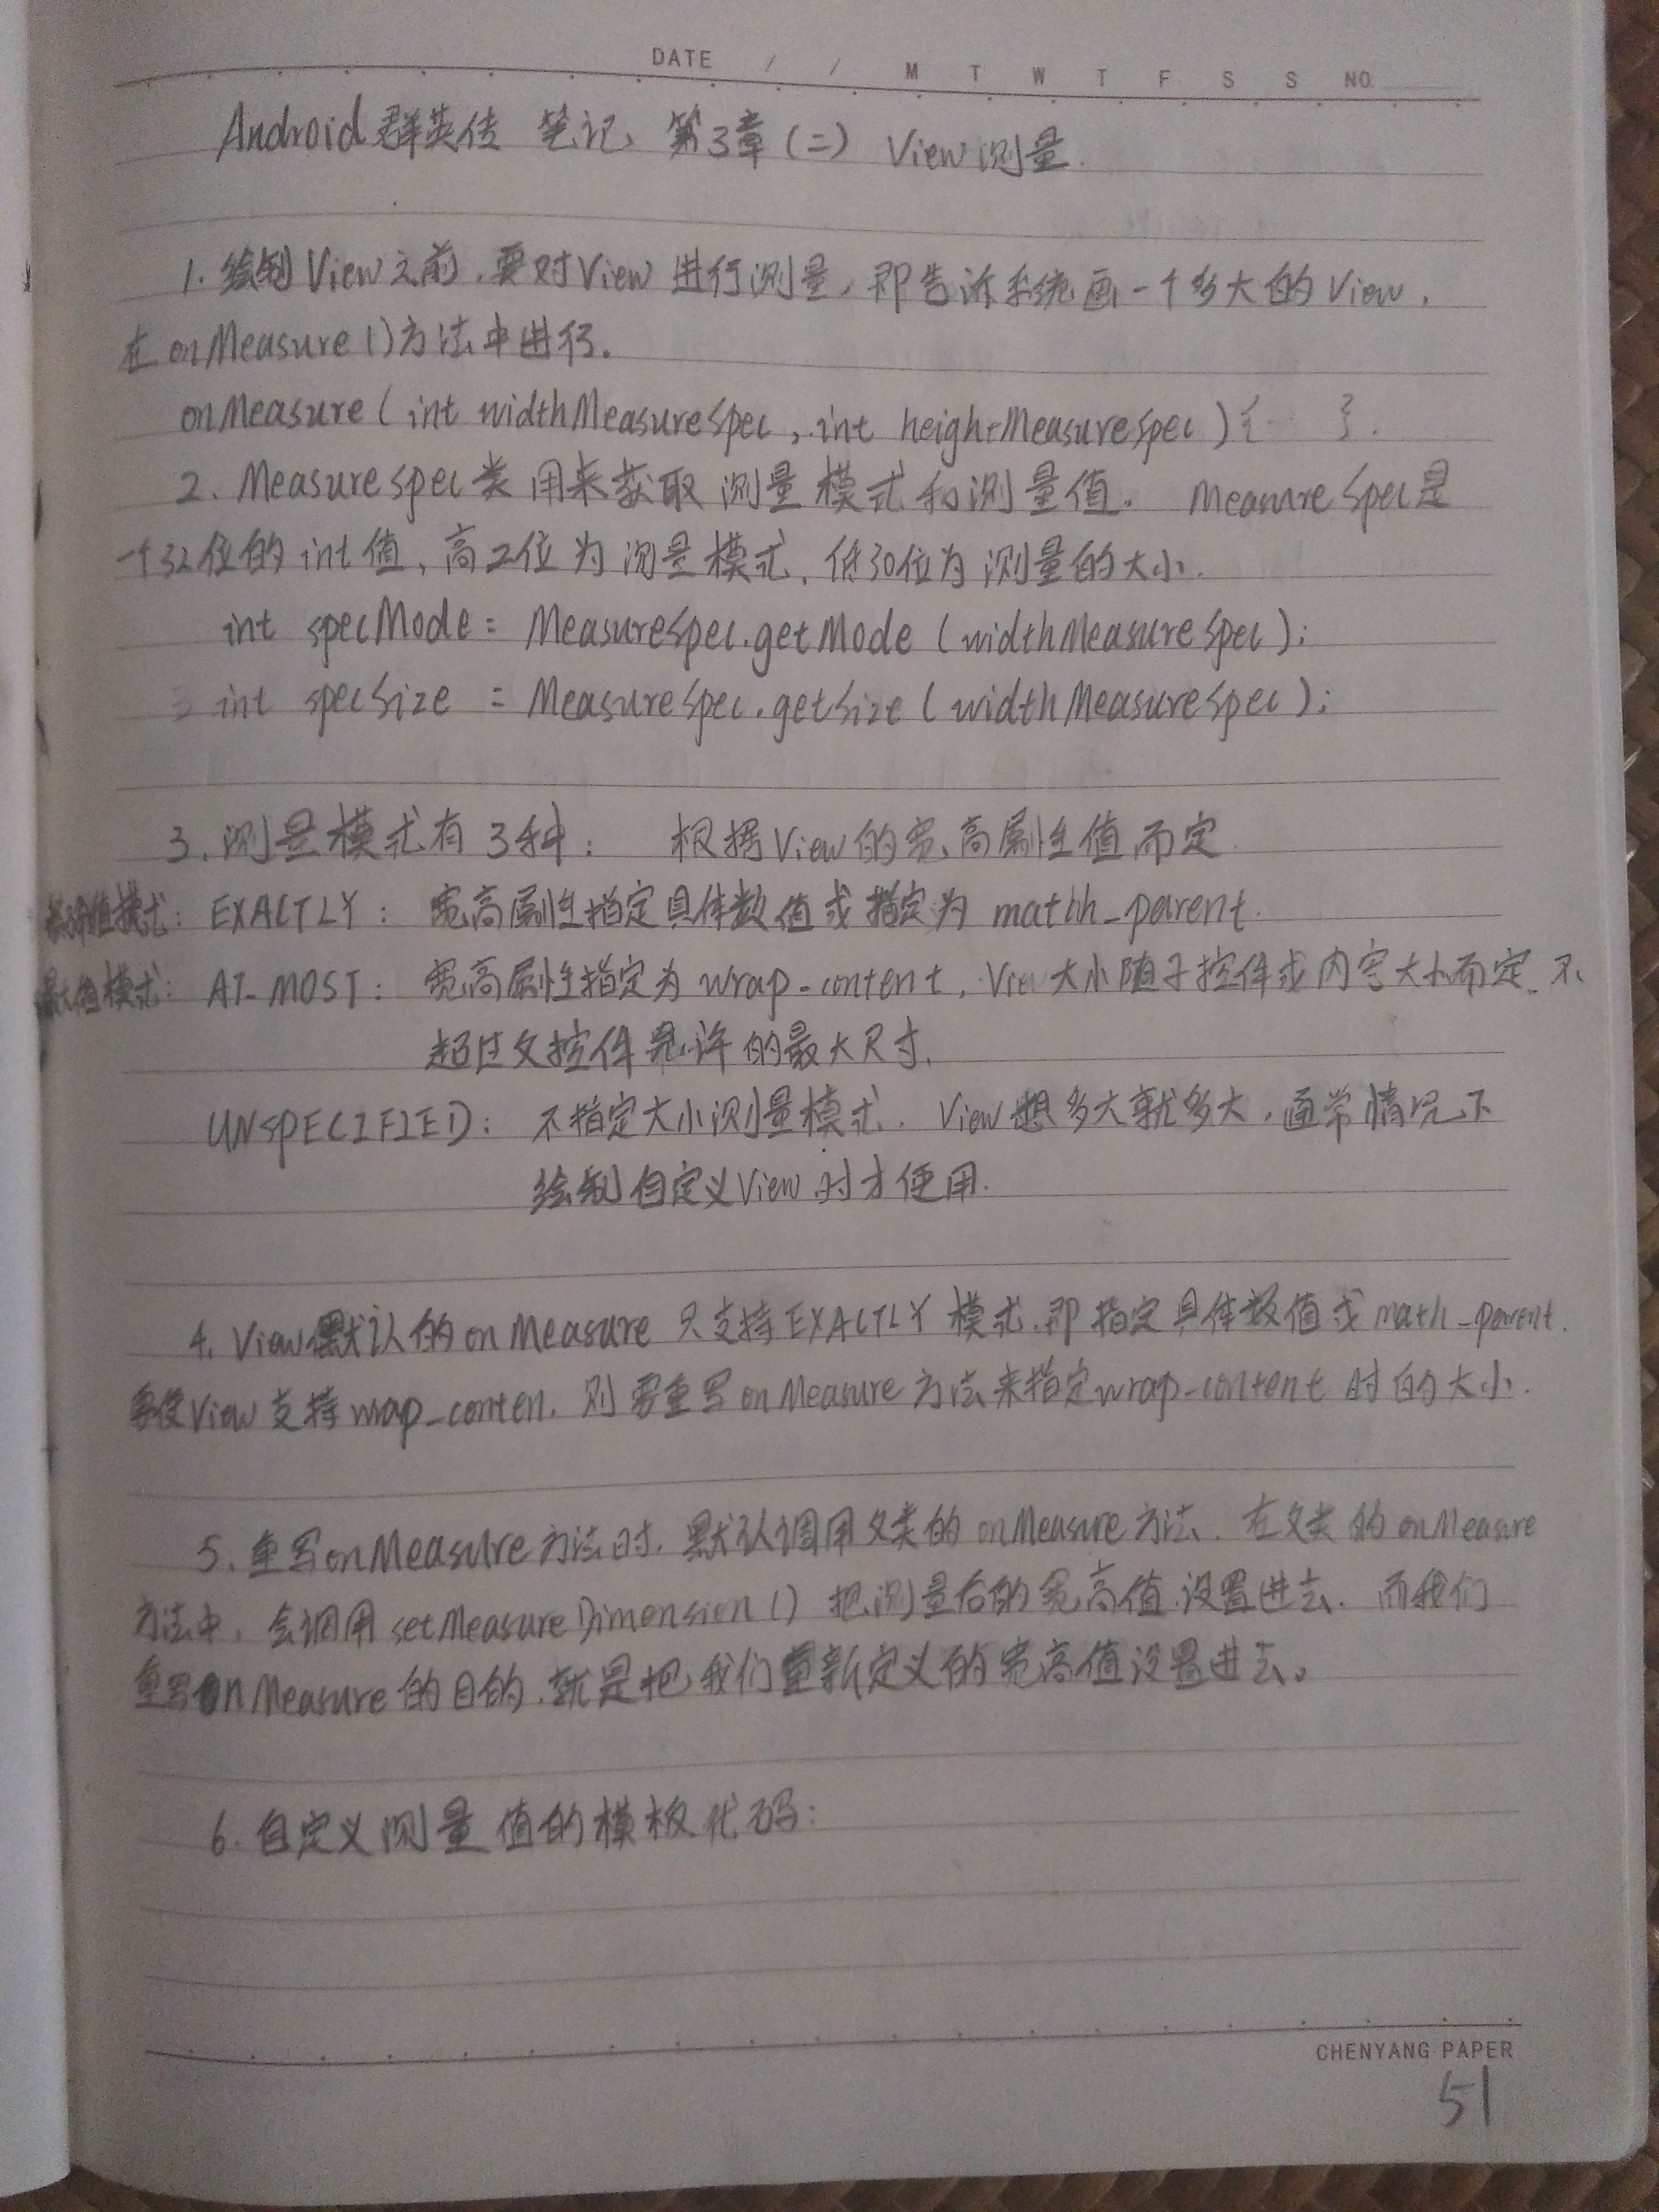 DATE / / M T W T F S S NO.
Android群英传 笔记 第3章(二) View测量.
1. 绘制View之前,要对View进行测量,即告诉系统画一个多大的View,
在onMeasure()方法中进行.
onMeasure(int widthMeasureSpec,int heightMeasureSpec){ }.
2. MeasureSpec类用来获取测量模式和测量值. MeasureSpec是
一个32位的int值,高2位为测量模式,低30位为测量的大小.
int specMode = MeasureSpec.getMode(widthMeasureSpec);
int specSize = MeasureSpec.getSize(widthMeasureSpec);
3. 测量模式有3种: 根据View的宽、高属性值而定
值模式: EXACTLY: 宽高属性指定具体数值或指定为mathh_parent.
最大值模式: AT_MOST: 宽高属性指定为wrap_content,View大小随子控件或内容大小而定.不
超过父控件允许的最大尺寸.
UNSPECIFIED: 不指定大小测量模式. View想多大就多大,通常情况下
绘制自定义View时才使用.
4. View默认的onMeasure只支持EXACTLY模式,即指定具体数值或math_parent.
要使View支持wrap_conten,则要重写onMeasure方法来指定wrap_content时的大小.
5. 重写onMeasure方法时,默认调用父类的onMeasure方法.在父类的onMeasure
方法中,会调用setMeasureDimension()把测量后的宽高值设置进去.而我们
重写onMeasure的目的,就是把我们重新定义的宽高值设置进去。
6. 自定义测量值的模板代码:
CHENYANG PAPER
51